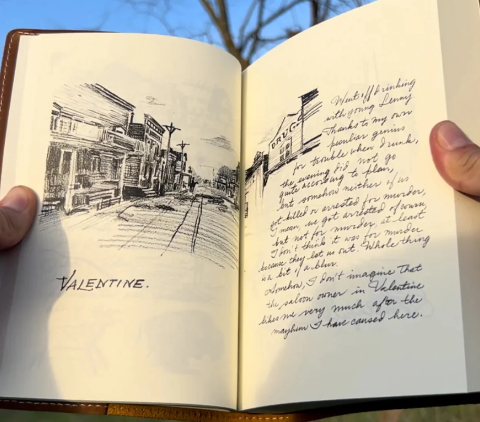 VALENTINE.
DRUGS
Went off drinking
with young Lenny
Thanks to my own
peculiar genius
for trouble when Drunk,
the evening did not go
quite according to plan,
but somehow neither of us
got killed or arrested for murder,
I mean, we got arrested of course,
but not for murder at least
I don't think it was for murder
because they let us out. Whole thing
is a bit of a blur.
Somehow, I don't imagine that
the saloon owner in Valentine
likes me very much after the
mayhem I have caused here.